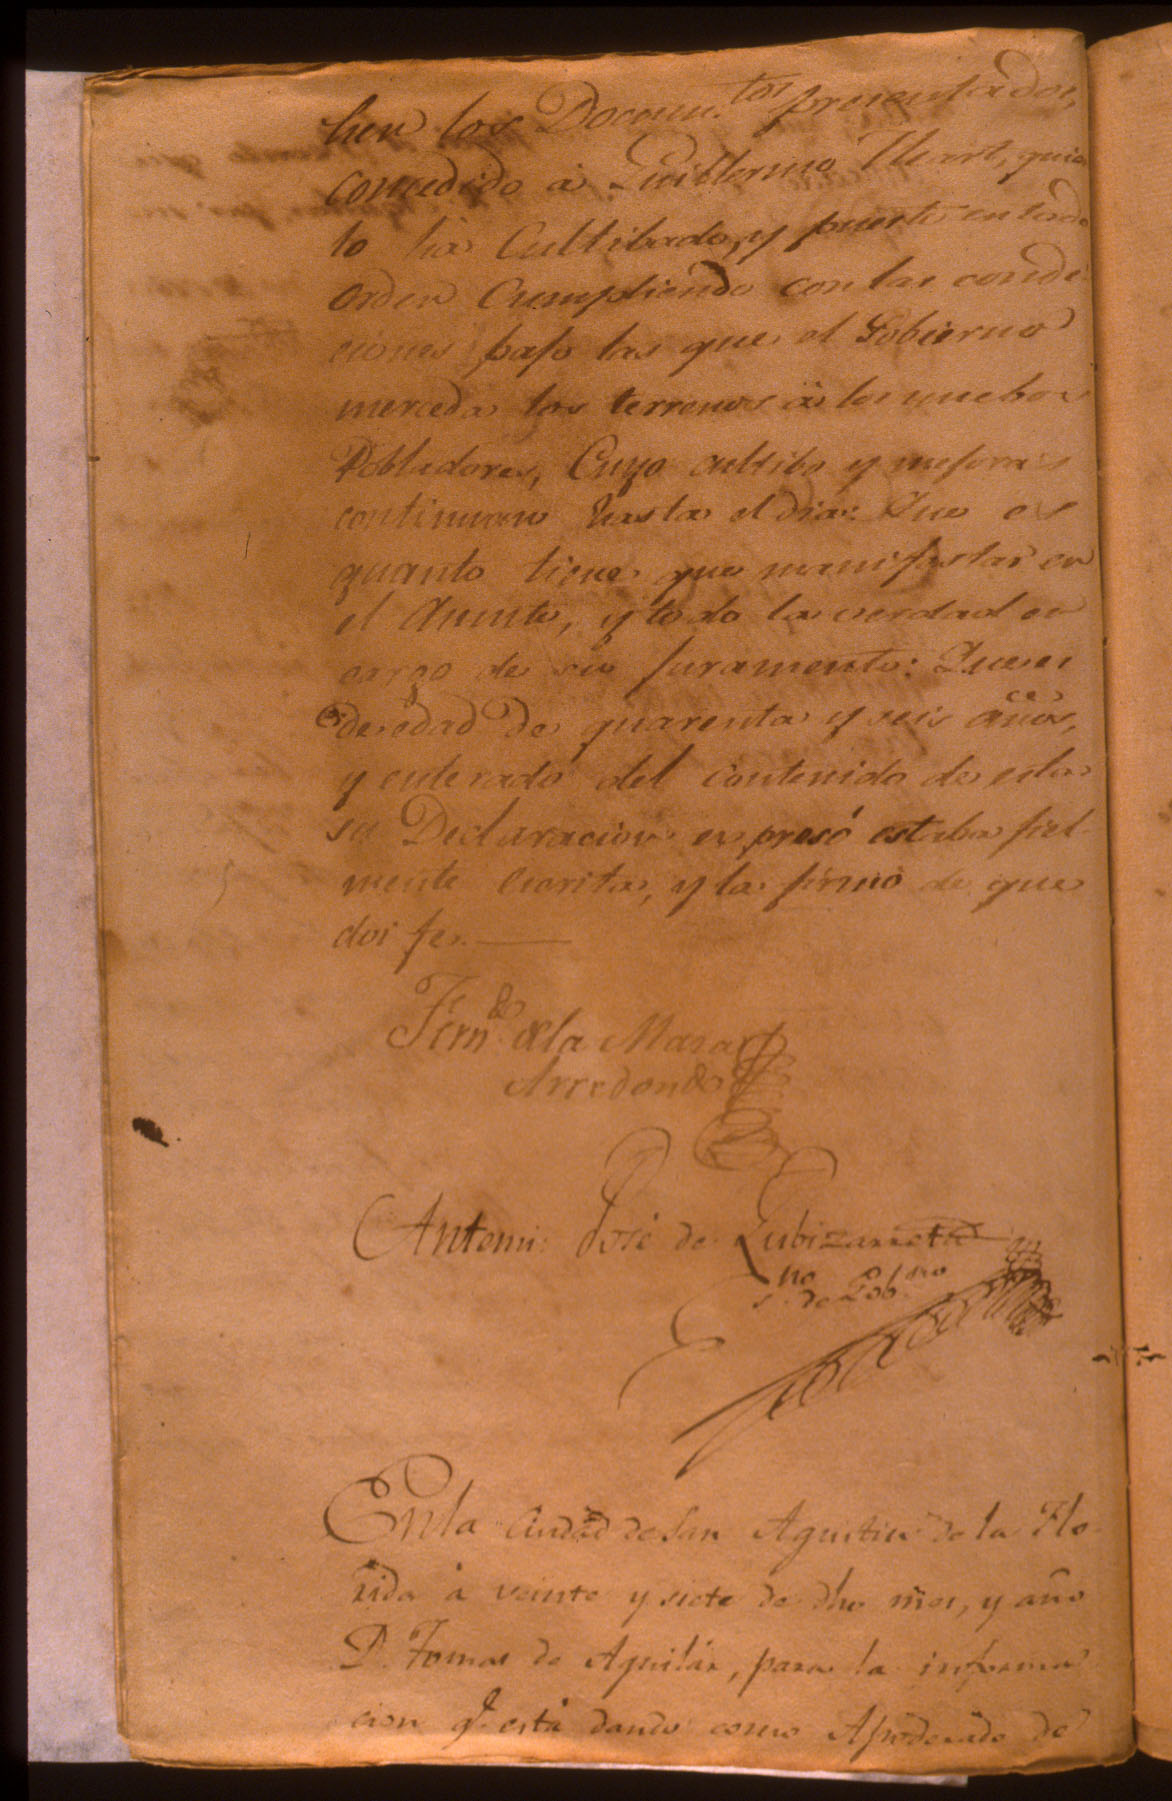 hen los Docum.tos presentados,
concedido à Guillermo Heart, quien
lo ha Cultibado, y puesto en todo
orden Cumpliendo con las condi-
ciones bajo las que el Gobierno
merceda los terrenos à los nuebos
Pobladores, Cuyo cultibo y mejoras
continuan hasta el dia: Que es
quanto tiene que manifestar en
el Asunto, y todo la verdad en
cargo de su juramento: Que es
de edad de quarenta y seis años,
y enterado del contenido de esta
su Declaracion expresó estaba fiel-
mente escrita, y la firmó de que
doi fe.
Fern.do de la Maza
Arredondo
Antemi: José de Zubizarreta
s.no de Gob.no
En la Ciudad de San Agustin de la Flo-
rida à veinte y siete de dho mes, y año
D. Tomas de Aguilar, para la informa
cion q.e està dando como Apoderado de